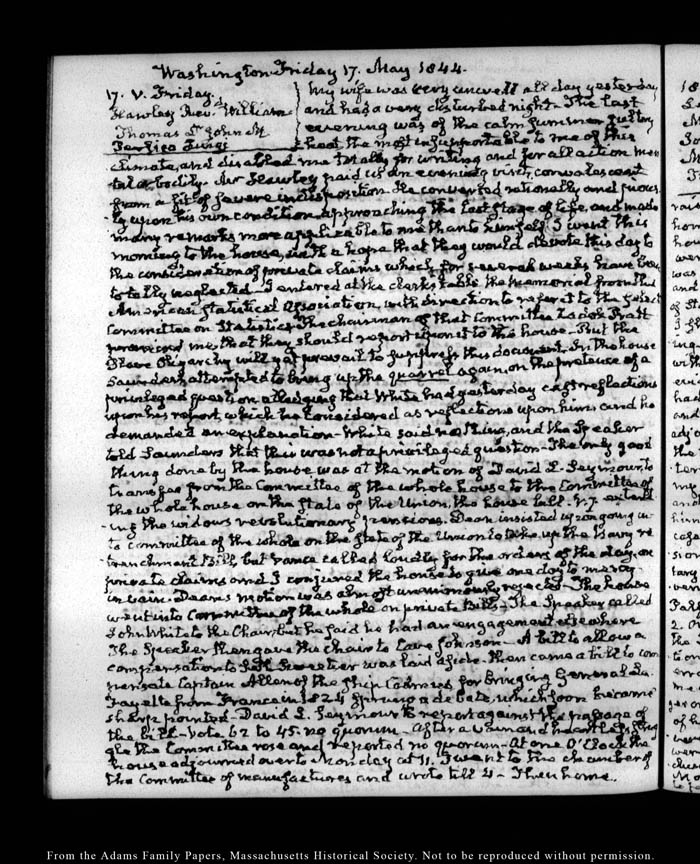 Washington Friday 17. May 1844.
17. V. Friday.
Hawley Rev. William
Thomas St John M
My wife was very unwell all day yesterday
and had a very disturbed night. The last
evening was of the calm summer sultry
heat the most insupportable to me of this
climate, and disabled me totally for writing and for all action men
tal or bodily. Mr Hawley paid us an evening visit, convalescent
from a fit of severe indisposition. He conversed rationally and pious
ly upon his own condition approaching the last stage of life, and made
many remarks more applicable to me than to himself. I went this
morning to the house, with a hope that they would devote this day to
the consideration of private claims which for several weeks have been
totally neglected. I entered at the clerk's table the memorial from the
American Statistical Association, with direction to refer it to the select
committee on Statistics. The chairman of that Committee Zadok Pratt
promised me that they should report upon it to the house. But the
Slave Oligarchy will yet prevail to suppress this document. In the house
Saunders attempted to bring up the quarrel again, on the pretence of a
privileged question, alledging that White had yesterday cast reflections
upon his report, which he considered as reflections upon him and he
demanded an explanation. White said nothing, and the Speaker
told Saunders that this was not a privileged question. The only good
thing done by the house was at the motion of David L. Seymour, to
transfer from the Committee of the whole house to the Committee of
the whole house on the state of the Union, the house bill extend
ing the widows revolutionary pensions. Dean insisted upon going in
to committee of the whole on the state of the Union to take up the Navy re
trenchment Bill, but Vance called loudly for the orders of the day, on
private claims and I conjured the house to give one day to mercy
in vain. Dean's motion was almost unanimously rejected. The house
went into Committee of the whole on private Bills. The Speaker called
John White to the Chair, but he said he had an engagement elsewhere
The Speaker then gave the Chair to Cave Johnson. A bill to allow a
compensation to was laid aside. Then came a bill to com
pensate Captain Allen of the ship Cadmus, for bringing General La
Fayette from France in 1824 Sprung a debate, which soon became
sharp pointed. David L. Seymour to report against the passage of
the bill. Vote 62 to 45. no quorum. After a vain and heartless strug
gle the Committee rose and reported no quorum. At one O'Clock the
house adjourned over to Monday at 11. I went to the chamber of
the Committee of manufactures and wrote till 4. Then home.
From the Adams Family Papers, Massachusetts Historical Society. Not to be reproduced without permission.